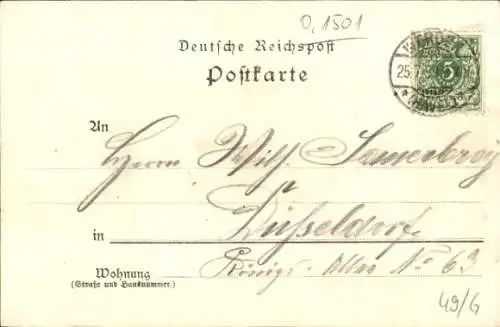 0,1501
Deutsche Reichspost
Postkarte
WERDER
25.7.
(HAVEL)
5
An
Herrn Wilh. Sauerbrey
Düsseldorf
in
Wohnung
(Straße und Hausnummer.)
Königs-Allee No 63
49/G